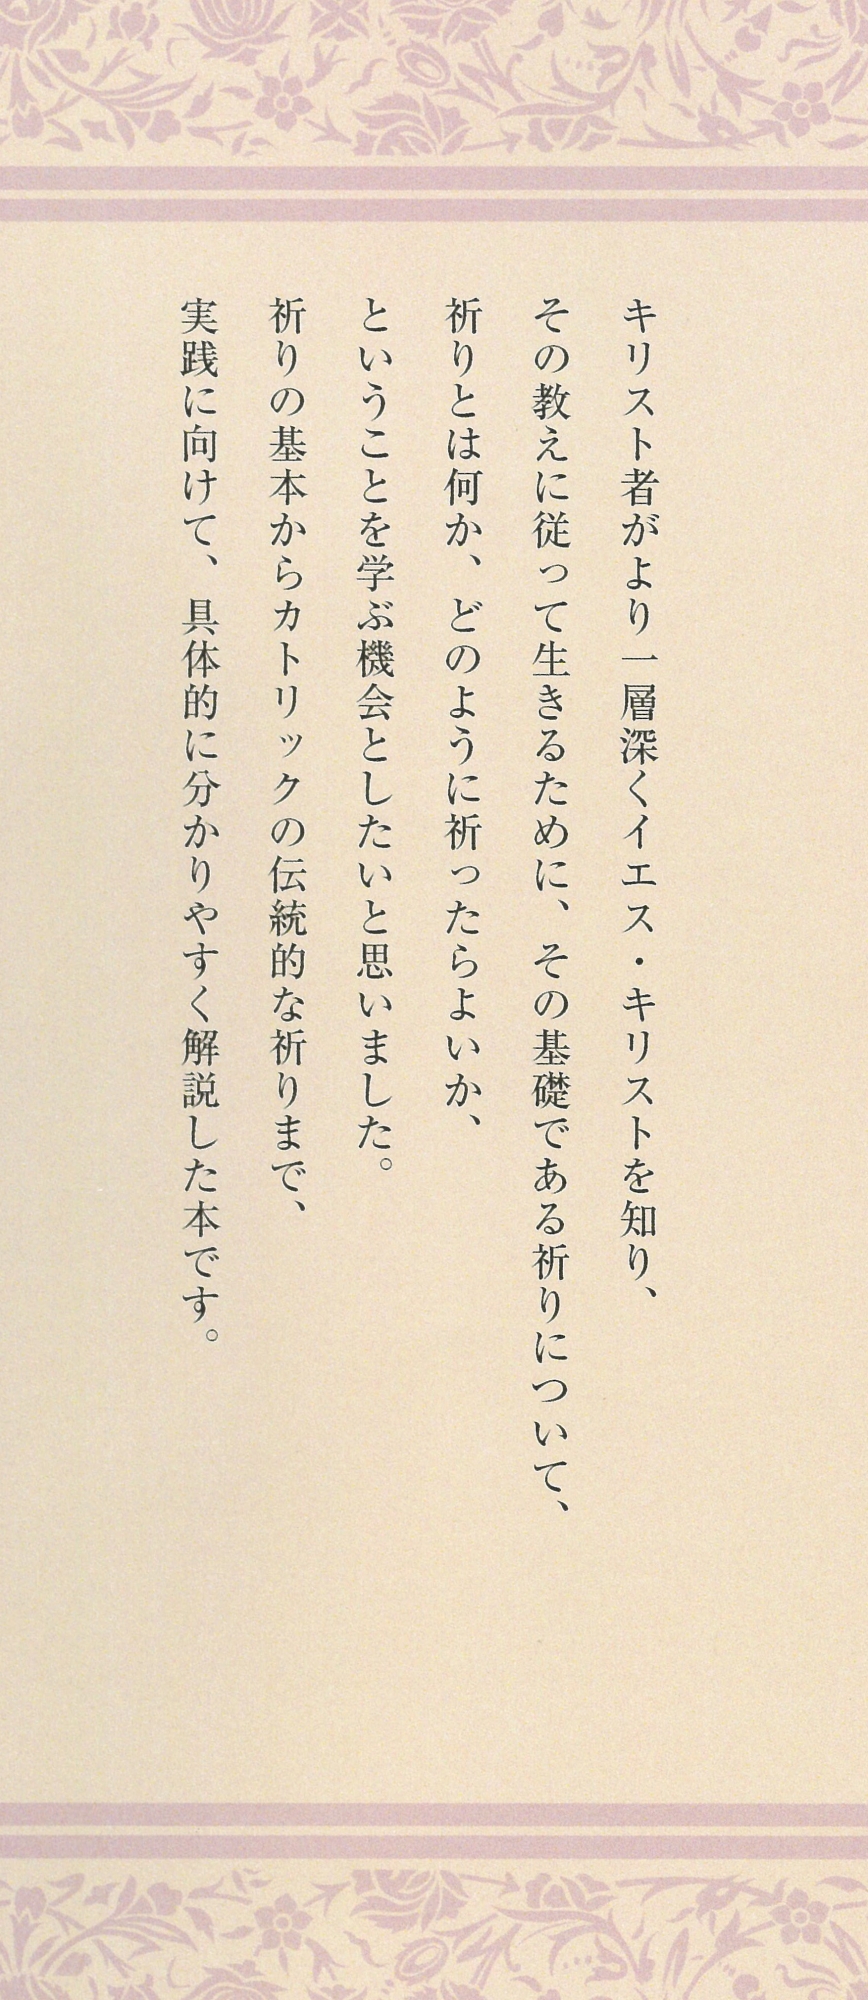 キリスト者がより一層深くイエス・キリストを知り、
その教えに従って生きるために、その基礎である祈りについて、
祈りとは何か、どのように祈ったらよいか、
ということを学ぶ機会としたいと思いました。
祈りの基本からカトリックの伝統的な祈りまで、
実践に向けて、具体的に分かりやすく解説した本です。